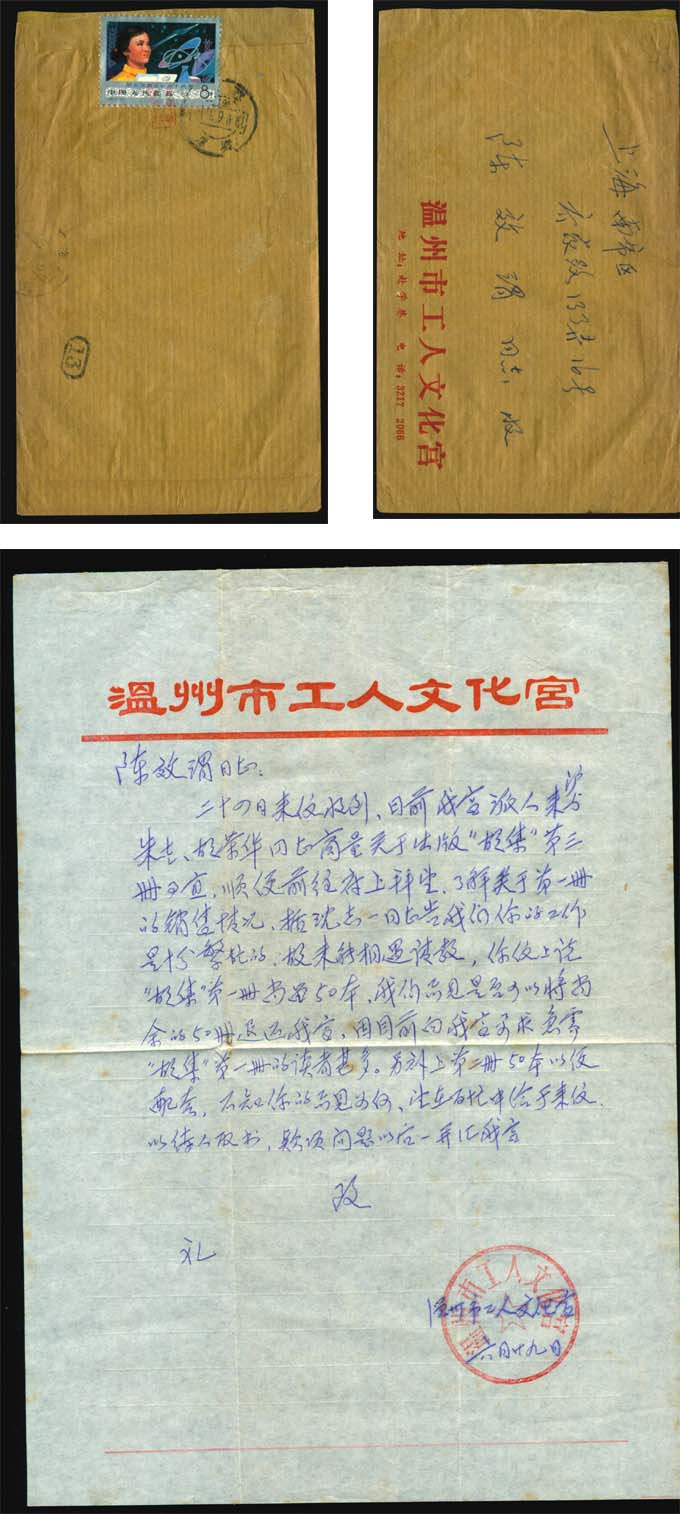 8分
中国人民邮政
13
上海南市区
16号
陈效瑂同志 收
温州市工人文化宫
地址：赴学巷 电话：3217 2066
温州市工人文化宫
陈效瑂同志：
二十四日来信收到，日前我宫派人来沪与
朱 、胡荣华同志商量关于出版“胡集”第三
册事宜，顺便前往府上拜望，了解关于第一册
的销售情况，据沈志一同志告我们你的工作
是十分繁忙的，故未能相遇请教，你信上说
“胡集”第一册尚留50本，我们意见是否可以将尚
余的50册退还我宫，因目前向我宫 急需
“胡集”第一册的读者甚多。另补上第二册50本以便
配套，不知你的意见如何，请在百忙中给予来信
以 人取书，款项问题以后一并汇我宫
致
礼
温州市工人文化宫
温州市工人文化宫
六月廿九日